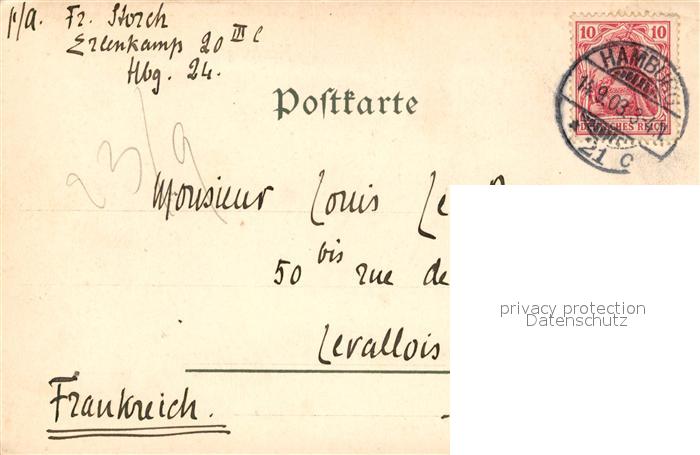 p/a. Fr. Storch
Erlenkamp 20 III l
Hbg. 24.
10 10
HAMBURG
14.9.03. 3-4
DEUTSCHES REICH
* 21 c
Postkarte
23/9
Monsieur Louis Le
50 bis rue de
Levallois
Frankreich.
privacy protection
Datenschutz